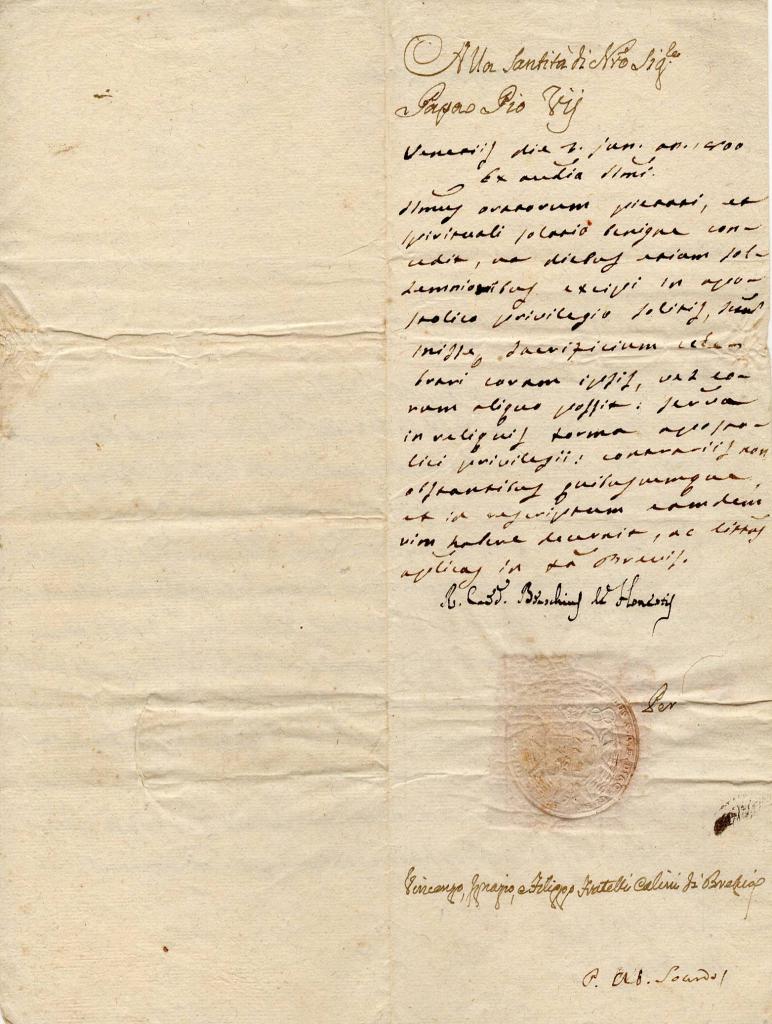 Alla Santità di Nro Sigre
Papa Pio VIJ
Venetiis die 2. Jun. an. 1800
Ex audia SSmi.
SSmus oratorum pietati, et
spirituali solatio benigne con-
cedit, ut diebus etiam sol-
lemnioribus excipi in apo-
stolico privilegio solitis, 
missæ sacrificium cele-
brari coram ipsis, vel eo-
rum aliquo possit: servata
in reliquis forma aposto-
lici privilegii: contrariis non
obstantibus quibuscumque,
et id rescriptum eamdem
vim habere decernit, ac litteras
aplicas in fa Brevis.
R. Card. Braschius de Honestis
Per
Vincenzo, Ignazio, e Filippo Fratelli Calini di Brescia
P. Ab.